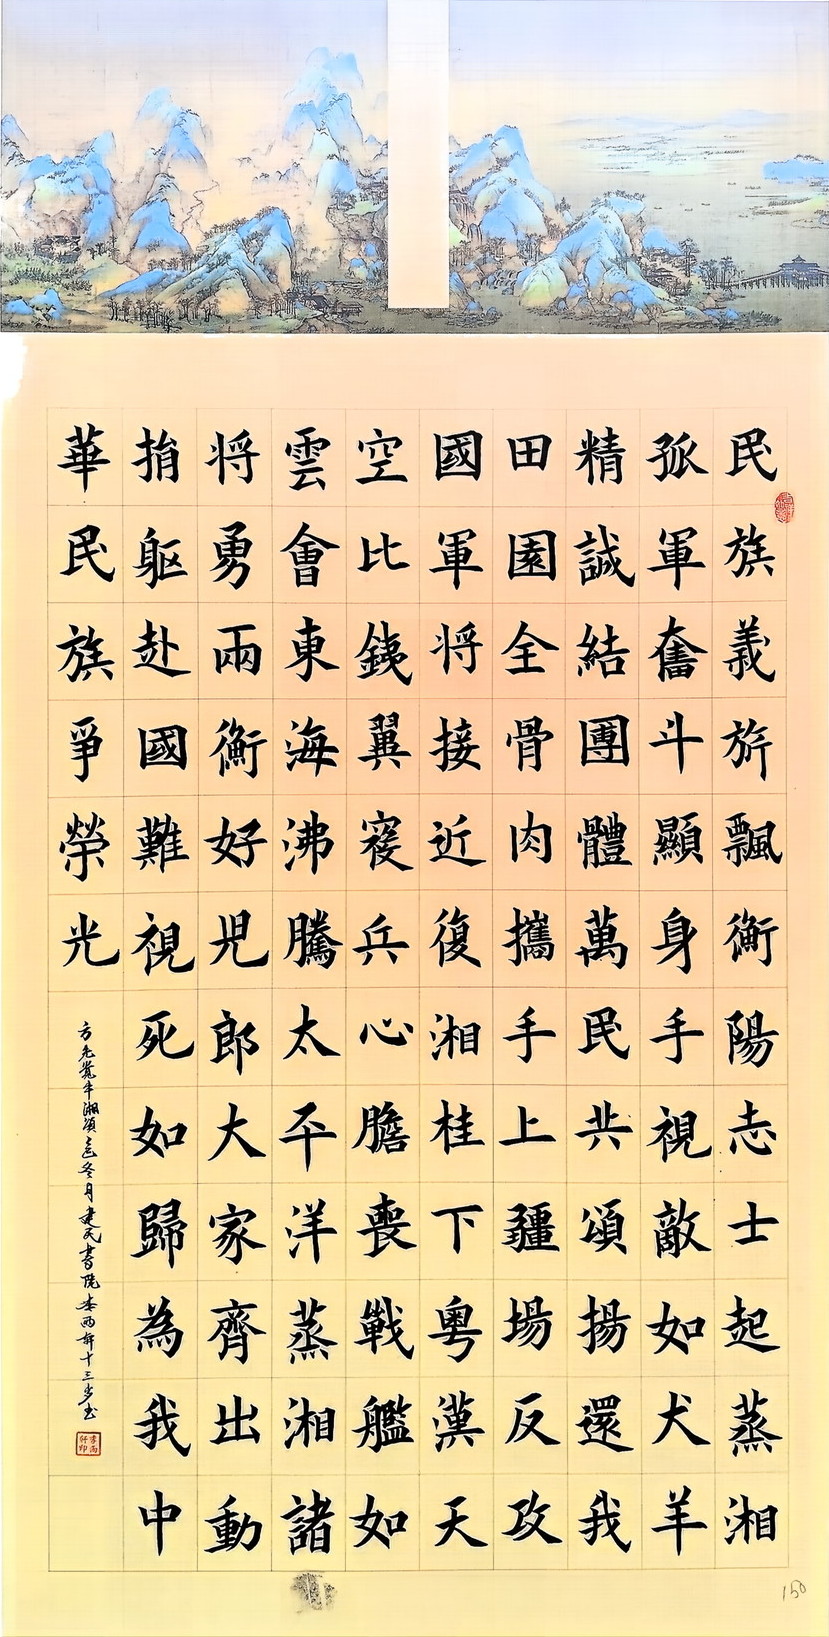 民族義旂飄衡陽志士起蒸湘
孤軍奮斗顯身手視敵如犬羊
精誠結團體萬民共頌揚還我
田園全骨肉攜手上疆場反攻
國軍将接近復湘桂下粤漢天
空比銕翼寇兵心膽喪戰艦如
雲會東海沸騰太平洋蒸湘諸
将勇兩衡好児郎大家齊出動
捐躯赴國難視死如歸為我中
華民族爭榮光
方先覺 湘頌 冬月建民書院李雨軒十三歲书
李雨軒印
150